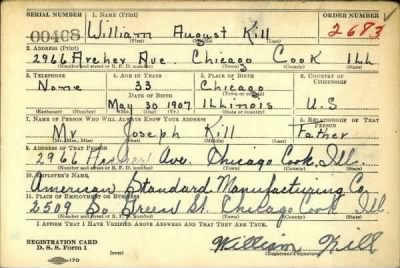 SERIAL NUMBER 1. NAME (Print) ORDER NUMBER
00408 William August Kill 2683
(First) (Middle) (Last)
2. ADDRESS (Print)
2966 Archer Ave. Chicago Cook Ill
(Number and street or R. F. D. number) (Town) (County) (State)
3. TELEPHONE 4. AGE IN YEARS 5. PLACE OF BIRTH 6. COUNTRY OF CITIZENSHIP
None 33 Chicago
DATE OF BIRTH (Town or county)
May 30 1907 Illinois U.S
(Exchange) (Number) (Mo.) (Day) (Yr.) (State or country)
7. NAME OF PERSON WHO WILL ALWAYS KNOW YOUR ADDRESS 8. RELATIONSHIP OF THAT PERSON
Mr Joseph Kill Father
(Mr., Mrs., Miss) (First) (Middle) (Last)
9. ADDRESS OF THAT PERSON
2966 Ave. Chicago Cook Ill.
(Number and street or R. F. D. number) (Town) (County) (State)
10. EMPLOYER'S NAME
American Standard Manufacturing Co
11. PLACE OF EMPLOYMENT OR BUSINESS
2509 So Green St. Chicago Cook Ill
(Number and street or R. F. D. number) (Town) (County) (State)
I AFFIRM THAT I HAVE VERIFIED ABOVE ANSWERS AND THAT THEY ARE TRUE.
REGISTRATION CARD
D. S. S. Form 1 (over) William Kill
(Registrant's signature)